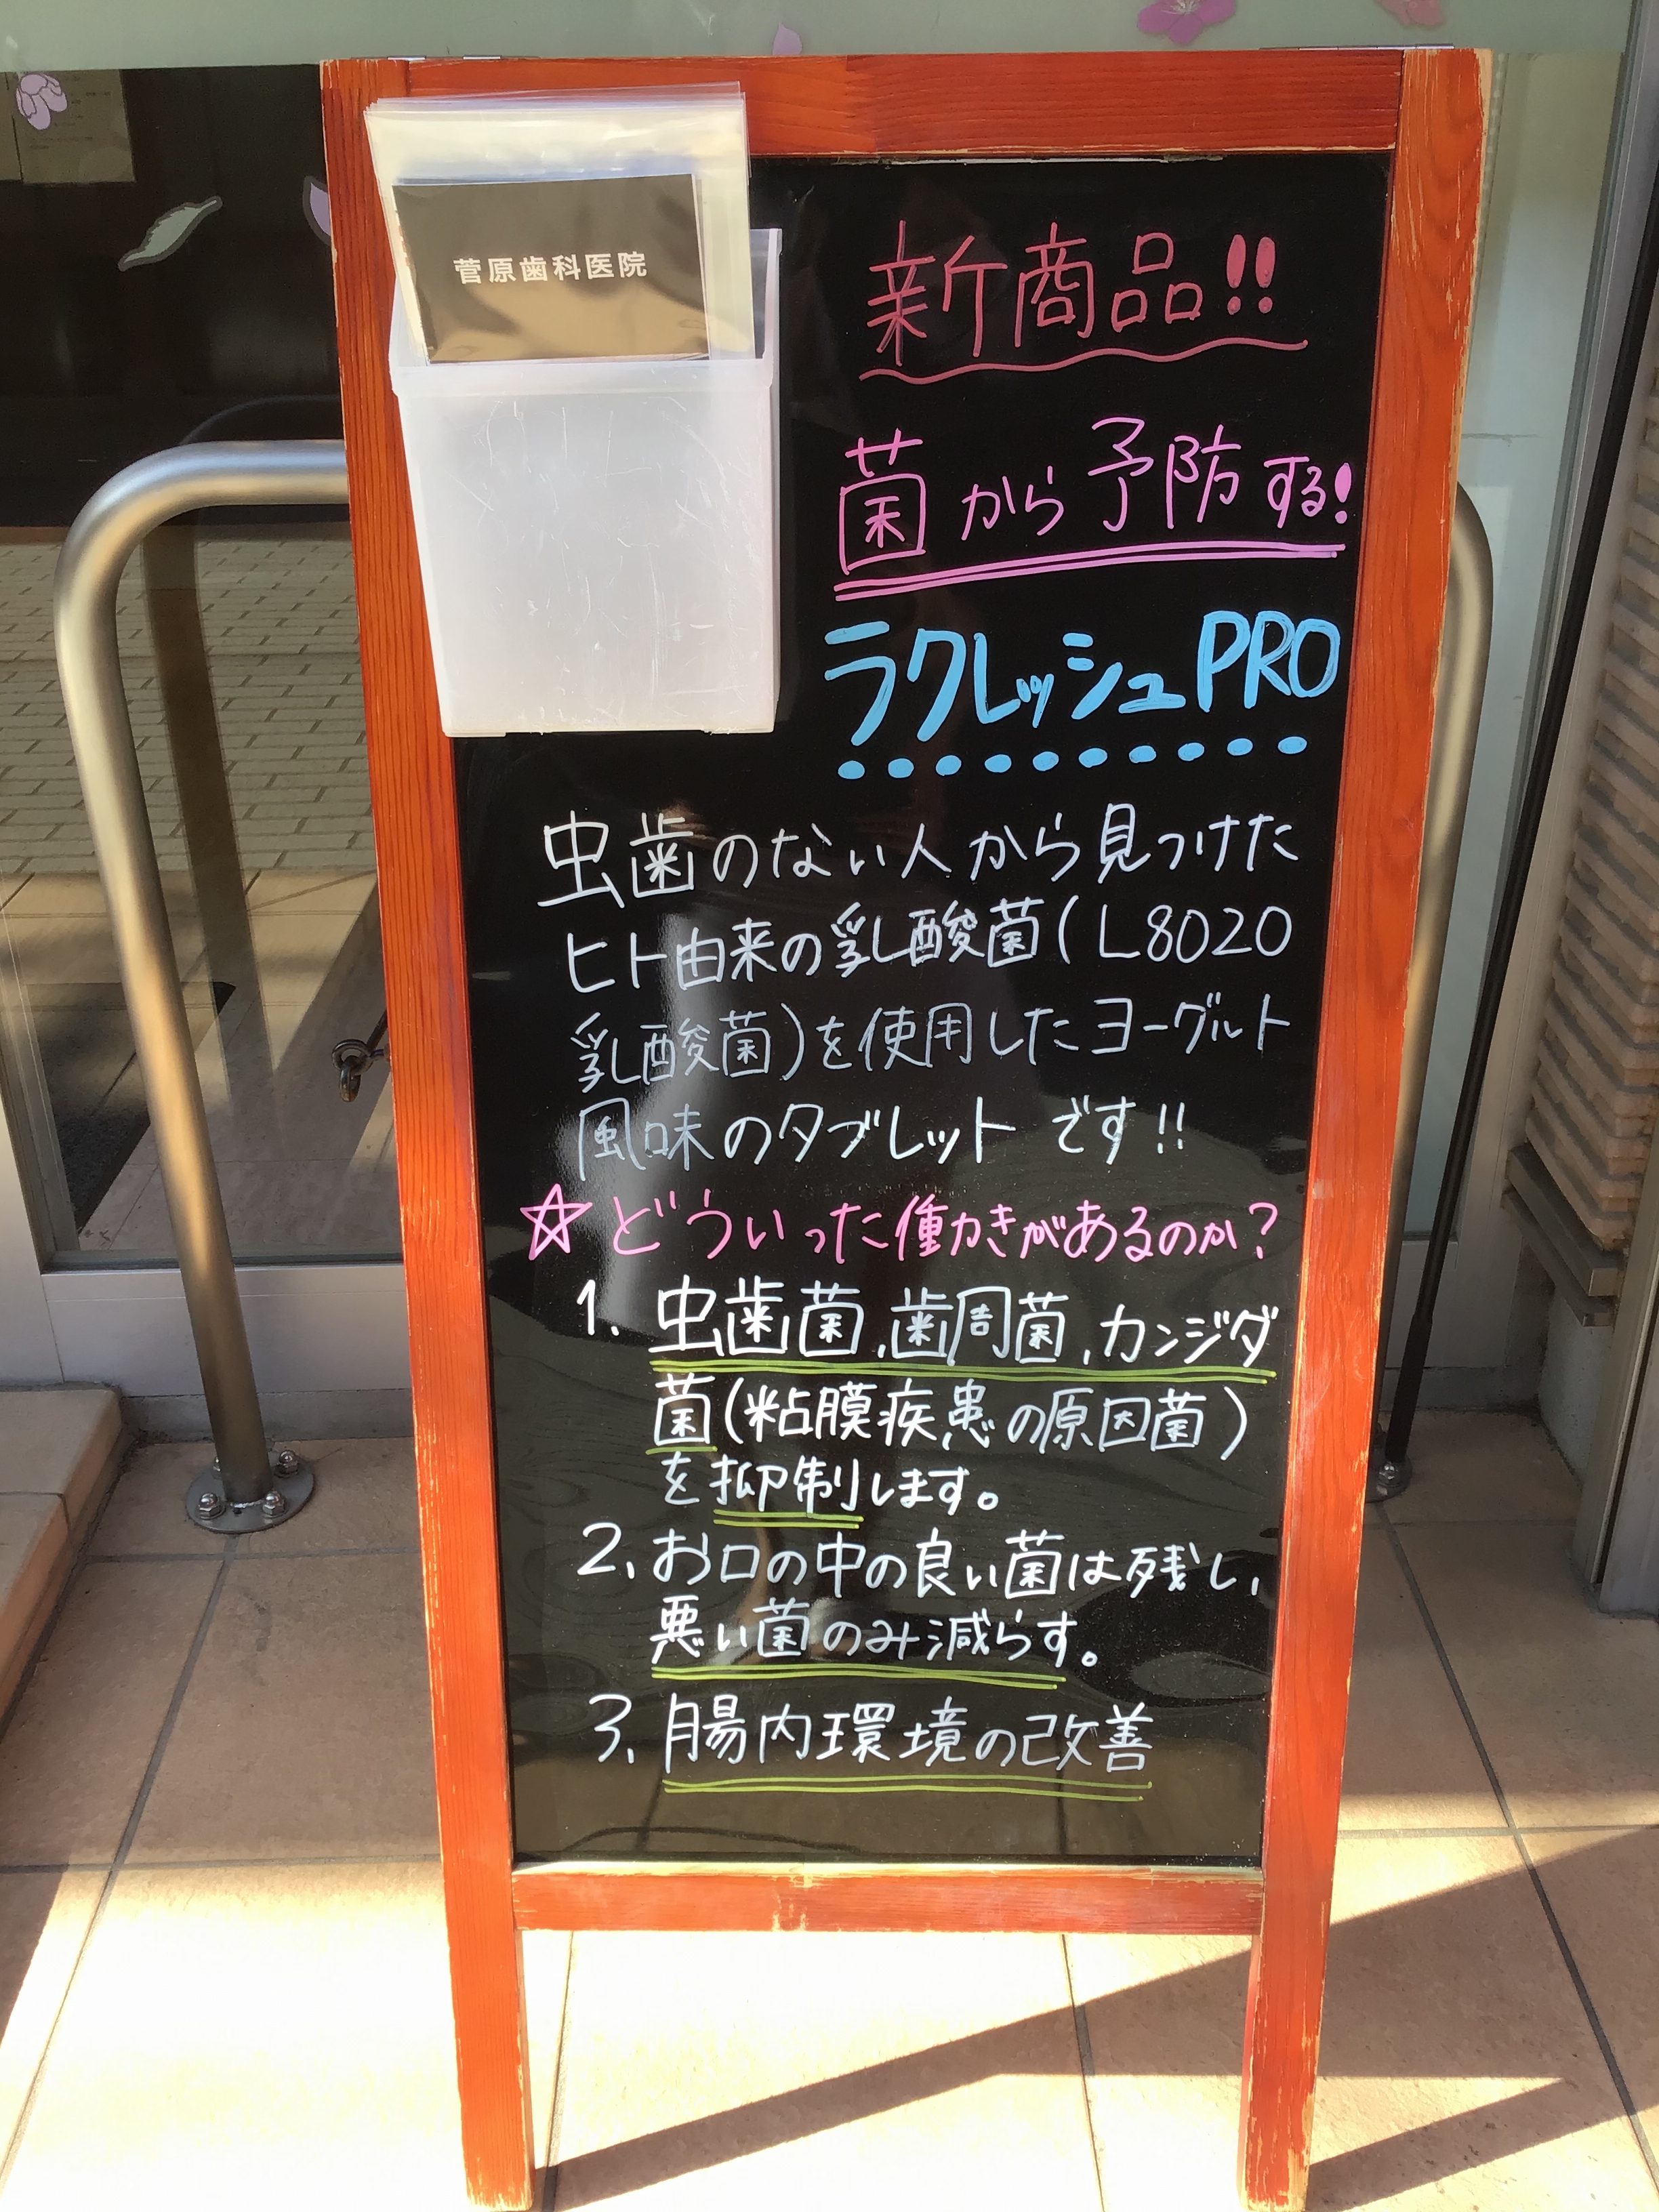 菅原歯科医院
新商品!!
菌から予防する!
ラクレッシュPRO
虫歯のない人から見つけた
ヒト由来の乳酸菌(L8020
乳酸菌)を使用したヨーグルト
風味のタブレットです!!
☆どういった働かきがあるのか?
1. 虫歯菌、歯周菌、カンジダ
菌(粘膜疾患の原因菌)
を抑制します。
2、お口の中の良い菌は残し、
悪い菌のみ減らす。
3、腸内環境の改善